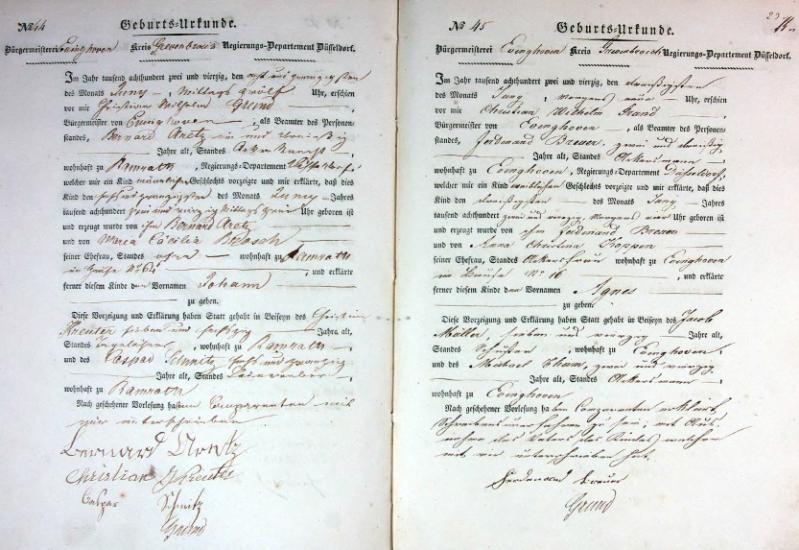 № 44
Geburts-Urkunde.
Bürgermeisterei Evinghoven Kreis Grevenbroich Regierungs-Departement Düsseldorf.
Im Jahr tausend achthundert zwei und vierzig, den
des Monats Juny, Mittags zwölf Uhr, erschien
vor mir Christian Wilhelm Grund
Bürgermeister von Evinghoven, als Beamter des Personen-
standes, Bernard Aretz ein und dreißig
Jahre alt, Standes Ackerknecht
wohnhaft zu Ramrath, Regierungs-Departement Düsseldorf,
welcher mir ein Kind männlichen Geschlechts vorzeigte und mir erklärte, daß dies
Kind den des Monats Juny Jahres
tausend achthundert zwei und vierzig Mittags zwei Uhr geboren ist
und erzeugt wurde von ihm Bernard Aretz
und von Maria Cäcilia
seiner Ehefrau, Standes ohne wohnhaft zu Ramrath
in Hause No und erklärte
ferner diesem Kinde den Vornamen Johann
zu geben.
Diese Vorzeigung und Erklärung haben Statt gehabt in Beiseyn des Christian
Kreuter sieben und fünfzig Jahre alt,
Standes Tagelöhner, wohnhaft zu Ramrath
und des Caspar Schmitz, und
Jahre alt, Standes
wohnhaft zu Ramrath
Nach geschehener Vorlesung haben Comparenten mit
mir unterschrieben
Bernard Aretz
Christian Kreuter
Caspar Schmitz
Grund
№ 45
Geburts-Urkunde.
Bürgermeisterei Evinghoven Kreis Grevenbroich Regierungs-Departement Düsseldorf.
Im Jahr tausend achthundert zwei und vierzig, den dreißigsten
des Monats Juny, Morgens neun Uhr, erschien
vor mir Christian Wilhelm Grund
Bürgermeister von Evinghoven, als Beamter des Personen-
standes, Ferdinand Breuer, zwei und dreißig
Jahre alt, Standes Ackersmann
wohnhaft zu Evinghoven, Regierungs-Departement Düsseldorf,
welcher mir ein Kind weiblichen Geschlechts vorzeigte und mir erklärte, daß dies
Kind den dreißigsten des Monats Juny Jahres
tausend achthundert zwei und vierzig, Morgens vier Uhr geboren ist
und erzeugt wurde von ihm Ferdinand Breuer
und von Anna Christina Koppen
seiner Ehefrau, Standes Ackersfrau wohnhaft zu Evinghoven
in Hause No 16 und erklärte
ferner diesem Kinde den Vornamen Agnes
zu geben.
Diese Vorzeigung und Erklärung haben Statt gehabt in Beiseyn des Jacob
Müller, sieben und vierzig Jahre alt,
Standes Schuster, wohnhaft zu Evinghoven,
und des Michael Tham, zwei und vierzig
Jahre alt, Standes Ackersmann
wohnhaft zu Evinghoven
Nach geschehener Vorlesung haben Comparenten erklärt,
Schreibens unerfahren zu sein, mit Aus-
nahme des Vaters des Kindes welcher
mit mir unterschrieben hat.
Ferdenand Breuer
Grund